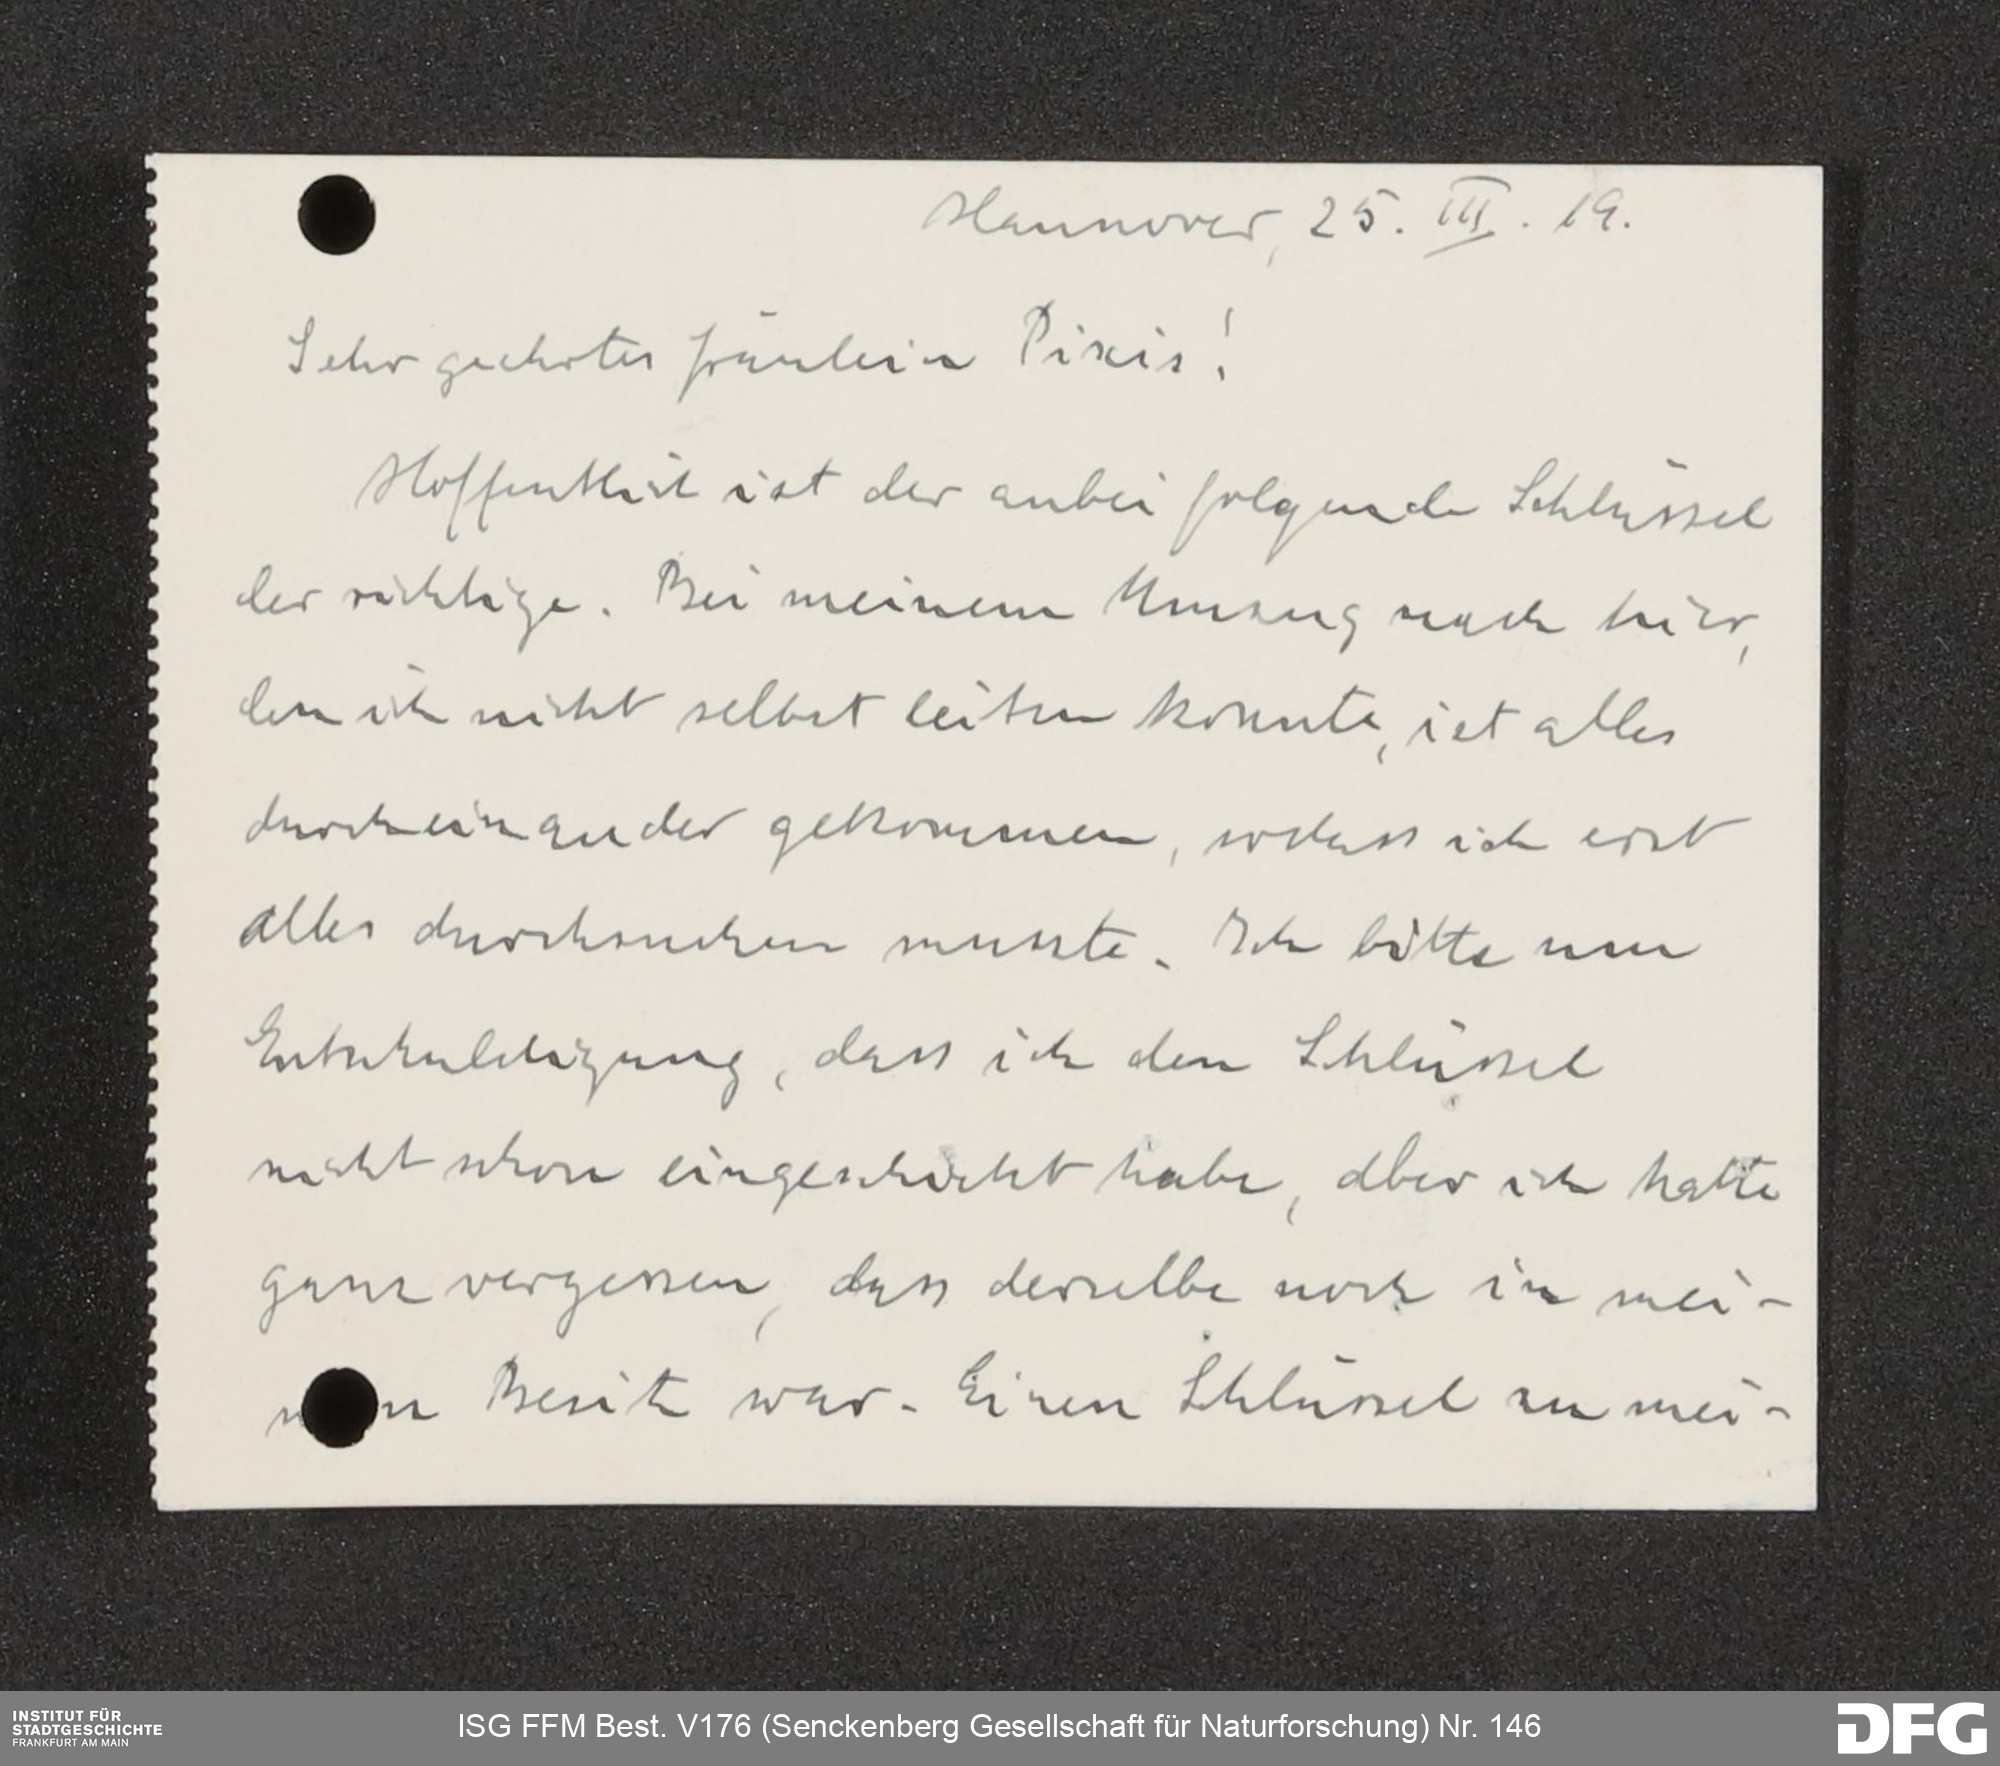 Hannover, 25. III. 19.
Sehr geehrtes Fräulein Pixis!
Hoffentlich ist der anbei folgende Schlüssel
der richtige. Bei meinem Umzug nach hier,
den ich nicht selbst leiten konnte, ist alles
durcheinander gekommen, sodass ich erst
alles durchsuchen musste. Ich bitte um
Entschuldigung, dass ich den Schlüssel
nicht schon eingeschickt habe, aber ich hatte
ganz vergessen, dass derselbe noch in mei-
nem Besitz war. Einen Schlüssel zu mei-
INSTITUT FÜR
STADTGESCHICHTE
FRANKFURT AM MAIN
ISG FFM Best. V176 (Senckenberg Gesellschaft für Naturforschung) Nr. 146
DFG